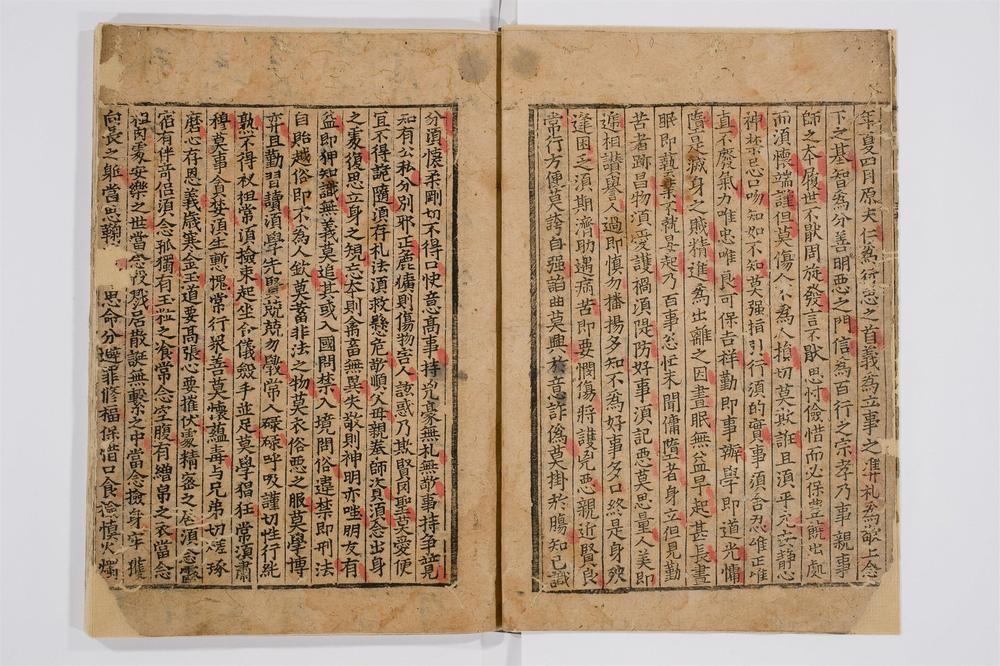 年夏四月原夫仁為行志之首義為立事之准礼為敬上念
下之基智為分善明惡之門信為百行之宗孝乃事親事
師之本履世不猒周旋發言不猒思忖儉惜而必保豊饒出處
而須懷端謹但莫傷人不為人搶切莫欺誑且須平允安静心
神禁忌口吻知如不知莫强指引行須的實事須舍忍唯正唯
直不廢氣力唯忠唯良可保吉祥勤即事辦學即道光慵
墮是滅身之賊精進為出離之因晝眠無益早起甚長晝
眠即執業不就晏起乃百事怠忙未聞慵墮者身立但見勤
苦者跡昌物須愛護禍須隄防好事須記惡莫思量人美即
逓相讃譽人過即慎勿播揚多知不為好事多口終是身殃
逢困乏須期濟助遇病苦即要憫傷將護兇惡親近賢良
常行方便莫誇自强諂曲莫興於意詐偽莫掛於膓知己識
分須懷柔剛切不得口快意高事持兇豪無礼無敬事持争競見
知有公私分別邪正麁慵則傷物害人詃惑乃欺賢罔聖莫愛便
宜不得詭隨須存礼法須救懸危勤順父母親慕師資須念出身
之處復思立身之規忘本則禽畜無異失敬則神明亦唑朋友有
益即狎知識無義莫追其或入國問禁入境問俗違禁即刑法
自貽越俗即不為人欽莫蓄非法之物莫衣俗惡之服莫學博
弈且勤習讀須學先賢兢兢勿斅常人碌碌呼吸謹切性行純
熟不得杈担常須撿束起坐令儀斂手並足莫學猖狂常須肅
穆莫事貪婪須生慙愧常行衆善莫懷蘊毒与兄弟切磋琢
磨心存恩義歲寒金玉道要高張心要摧伏處精密之卷須念露
宿有伴侣須念孤獨有玉粒之飡常念空腹有繒帛之衣當念
袒肉處安樂之世當念役戮居散誕無繫之中當念撿身牢
向長之軀當思鞠 思命分避罪修福保惜口食恰慎火燭